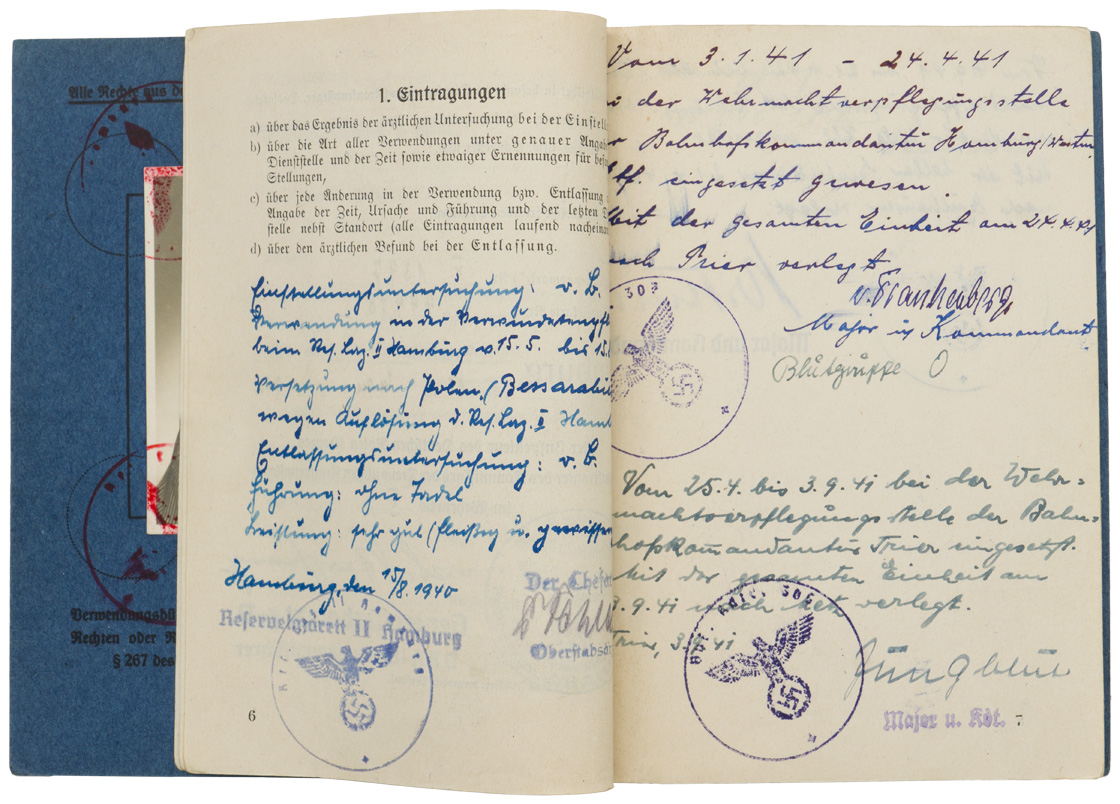 Alle Rechte aus de
Verwendungsbü
Rechten oder R
§ 267 des
1. Eintragungen
a) über das Ergebnis der ärztlichen Untersuchung bei der Einstell
b) über die Art aller Verwendungen unter genauer Anga
Dienststelle und der Zeit sowie etwaiger Ernennungen für be
Stellungen,
c) über jede Änderung in der Verwendung bzw. Entlassung
Angabe der Zeit, Ursache und Führung und der letzten D
stelle nebst Standort (alle Eintragungen laufend nacheinan
d) über den ärztlichen Befund bei der Entlassung.
Einstellungsuntersuchung: v. B.
Verwendung in der Verwundetenpfl
beim Res. Laz. II Hamburg v. 15.5. bis 15.
Versetzung nach Polen, (Bessarabi
wegen Auflösung d. Res. Laz. II Hamb
Entlassungsuntersuchung: v. B.
Führung: ohne Tadel
Leistung: sehr gut (fleißig u. gewissen
Hamburg, den 15/8. 1940
Reservelazarett II Hamburg
Der Chefar
Oberstabsar
6
Vom 3.1.41 - 24.4.41
der Wehrmachtverpflegungsstelle
Bahnhofskommandantur Homburg/
eingesetzt gewesen.
Mit der gesamten Einheit am 24.4.41
nach Trier verlegt
Major u. Kommandant
Blutgruppe O
Vom 25.4. bis 3.9.41 bei der Wehr=
machtverpflegungsstelle der Bahn=
hofskommandantur Trier eingesetzt.
Mit der gesamten Einheit am
3.9.41 nach Metz verlegt.
Trier, 3.9.41
Jungblut
Major u. Kdt.
7